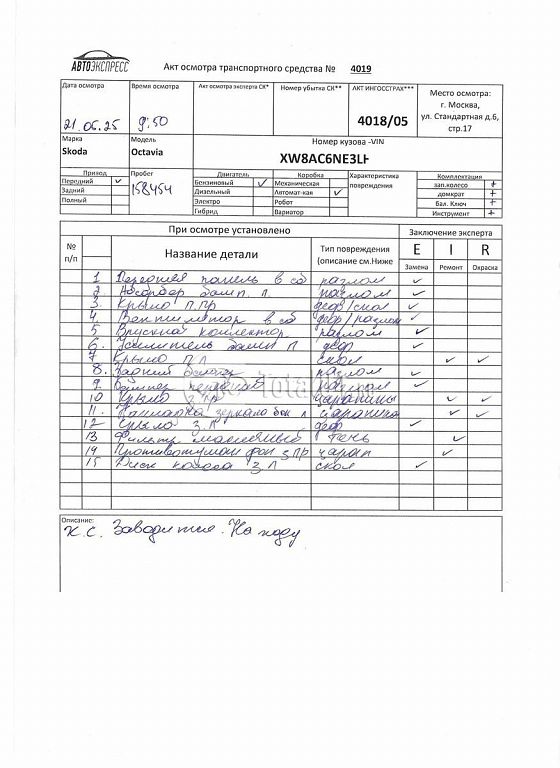 АВТОЭКСПРЕСС
Акт осмотра транспортного средства № 4019
Дата осмотра Время осмотра Акт осмотра эксперта СК* Номер убытка СК** АКТ ИНГОССТРАХ*** Место осмотра:
г. Москва,
ул. Стандартная д.6,
стр.17
21.05.25 9:50 4018/05
Марка Модель Номер кузова -VIN
Skoda Octavia XW8AC6NE3LH
Привод Пробег Двигатель Коробка Характеристика повреждения Комплектация
Передний ✓ 158454 Бензиновый ✓ Механическая зап.колесо +
Задний Дизельный Автомат-кая ✓ домкрат +
Полный Электро Робот бал. Ключ +
Гибрид Вариатор Инструмент +
При осмотре установлено Заключение эксперта
№ п/п Название детали Тип повреждения (описание см.Ниже E I R
Замена Ремонт Окраска
1 Передняя панель в сб разлом ✓
2 Абсорбер бамп. п разлом ✓
3. Крыло П.Пр деф/скол ✓
4. Вентилятор в сб деф/разлом ✓
5 Впускной коллектор разлом ✓
6. Усилитель бамп П деф ✓
7 Крыло П Л скол ✓ ✓
8. Задний бампер разлом ✓
9. Бампер передний разлом ✓
10 Крыло З.Пр царапины ✓ ✓
11. Накладка зеркала бок л царапина ✓ ✓
12 Крыло З.Л деф ✓
13 Фильтр масляный течь ✓
14 Противотуман фон З ПР царап ✓
15 Диск колеса З Л скол ✓
Total
Описание:
К.С. Заводится. На ходу